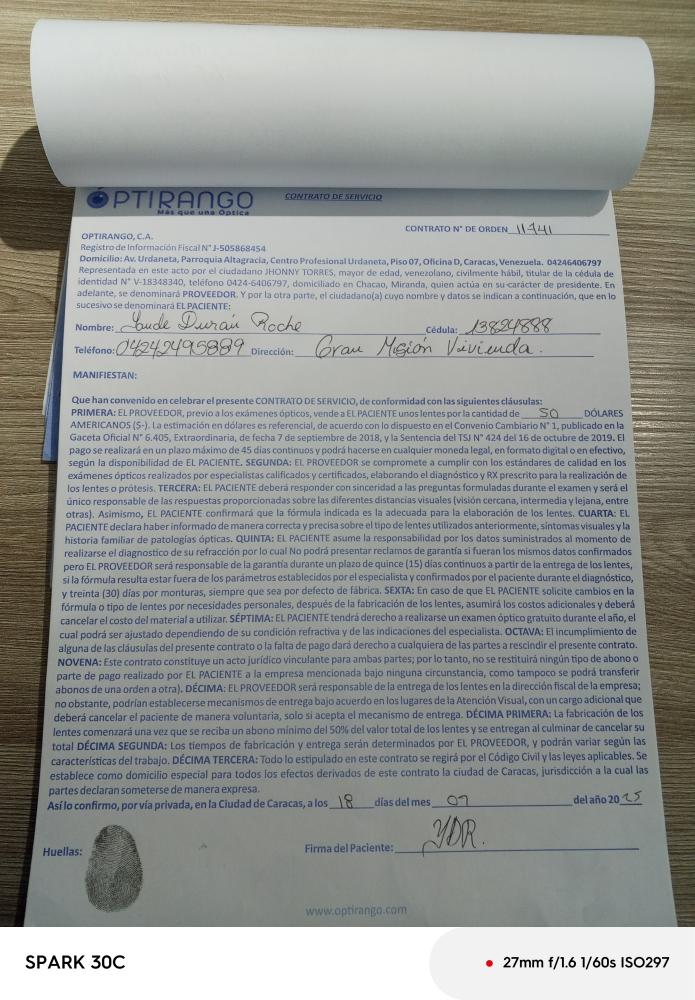 OPTIRANGO
Más que una Óptica
CONTRATO DE SERVICIO
CONTRATO N° DE ORDEN 11741
OPTIRANGO, C.A.
Registro de Información Fiscal N° J-505868454
Domicilio: Av. Urdaneta, Parroquia Altagracia, Centro Profesional Urdaneta, Piso 07, Oficina D, Caracas, Venezuela. 04246406797
Representada en este acto por el ciudadano JHONNY TORRES, mayor de edad, venezolano, civilmente hábil, titular de la cédula de
identidad N° V-18348340, teléfono 0424-6406797, domiciliado en Chacao, Miranda, quien actúa en su carácter de presidente. En
adelante, se denominará PROVEEDOR. Y por la otra parte, el ciudadano(a) cuyo nombre y datos se indican a continuación, que en lo
sucesivo se denominará EL PACIENTE:
Nombre: Durán Roche Cédula: 13824888
Teléfono: 04242495889 Dirección: Gran Misión Vivienda.
MANIFIESTAN:
Que han convenido en celebrar el presente CONTRATO DE SERVICIO, de conformidad con las siguientes cláusulas:
PRIMERA: EL PROVEEDOR, previo a los exámenes ópticos, vende a EL PACIENTE unos lentes por la cantidad de 50 DÓLARES
AMERICANOS ($-). La estimación en dólares es referencial, de acuerdo con lo dispuesto en el Convenio Cambiario N° 1, publicado en la
Gaceta Oficial N° 6.405, Extraordinaria, de fecha 7 de septiembre de 2018, y la Sentencia del TSJ N° 424 del 16 de octubre de 2019. El
pago se realizará en un plazo máximo de 45 días continuos y podrá hacerse en cualquier moneda legal, en formato digital o en efectivo,
según la disponibilidad de EL PACIENTE. SEGUNDA: EL PROVEEDOR se compromete a cumplir con los estándares de calidad en los
exámenes ópticos realizados por especialistas calificados y certificados, elaborando el diagnóstico y RX prescrito para la realización de
los lentes o prótesis. TERCERA: EL PACIENTE deberá responder con sinceridad a las preguntas formuladas durante el examen y será el
único responsable de las respuestas proporcionadas sobre las diferentes distancias visuales (visión cercana, intermedia y lejana, entre
otras). Asimismo, EL PACIENTE confirmará que la fórmula indicada es la adecuada para la elaboración de los lentes. CUARTA: EL
PACIENTE declara haber informado de manera correcta y precisa sobre el tipo de lentes utilizados anteriormente, síntomas visuales y la
historia familiar de patologías ópticas. QUINTA: EL PACIENTE asume la responsabilidad por los datos suministrados al momento de
realizarse el diagnostico de su refracción por lo cual No podrá presentar reclamos de garantía si fueran los mismos datos confirmados
pero EL PROVEEDOR será responsable de la garantía durante un plazo de quince (15) días continuos a partir de la entrega de los lentes,
si la fórmula resulta estar fuera de los parámetros establecidos por el especialista y confirmados por el paciente durante el diagnóstico,
y treinta (30) días por monturas, siempre que sea por defecto de fábrica. SEXTA: En caso de que EL PACIENTE solicite cambios en la
fórmula o tipo de lentes por necesidades personales, después de la fabricación de los lentes, asumirá los costos adicionales y deberá
cancelar el costo del material a utilizar. SÉPTIMA: EL PACIENTE tendrá derecho a realizarse un examen óptico gratuito durante el año, el
cual podrá ser ajustado dependiendo de su condición refractiva y de las indicaciones del especialista. OCTAVA: El incumplimiento de
alguna de las cláusulas del presente contrato o la falta de pago dará derecho a cualquiera de las partes a rescindir el presente contrato.
NOVENA: Este contrato constituye un acto jurídico vinculante para ambas partes; por lo tanto, no se restituirá ningún tipo de abono o
parte de pago realizado por EL PACIENTE a la empresa mencionada bajo ninguna circunstancia, como tampoco se podrá transferir
abonos de una orden a otra). DÉCIMA: EL PROVEEDOR será responsable de la entrega de los lentes en la dirección fiscal de la empresa;
no obstante, podrían establecerse mecanismos de entrega bajo acuerdo en los lugares de la Atención Visual, con un cargo adicional que
deberá cancelar el paciente de manera voluntaria, solo si acepta el mecanismo de entrega. DÉCIMA PRIMERA: La fabricación de los
lentes comenzará una vez que se reciba un abono mínimo del 50% del valor total de los lentes y se entregan al culminar de cancelar su
total DÉCIMA SEGUNDA: Los tiempos de fabricación y entrega serán determinados por EL PROVEEDOR, y podrán variar según las
características del trabajo. DÉCIMA TERCERA: Todo lo estipulado en este contrato se regirá por el Código Civil y las leyes aplicables. Se
establece como domicilio especial para todos los efectos derivados de este contrato la ciudad de Caracas, jurisdicción a la cual las
partes declaran someterse de manera expresa.
Así lo confirmo, por vía privada, en la Ciudad de Caracas, a los 18 días del mes 07 del año 2025
Huellas:
Firma del Paciente: YDR.
www.optirango.com
SPARK 30C
27mm f/1.6 1/60s ISO297